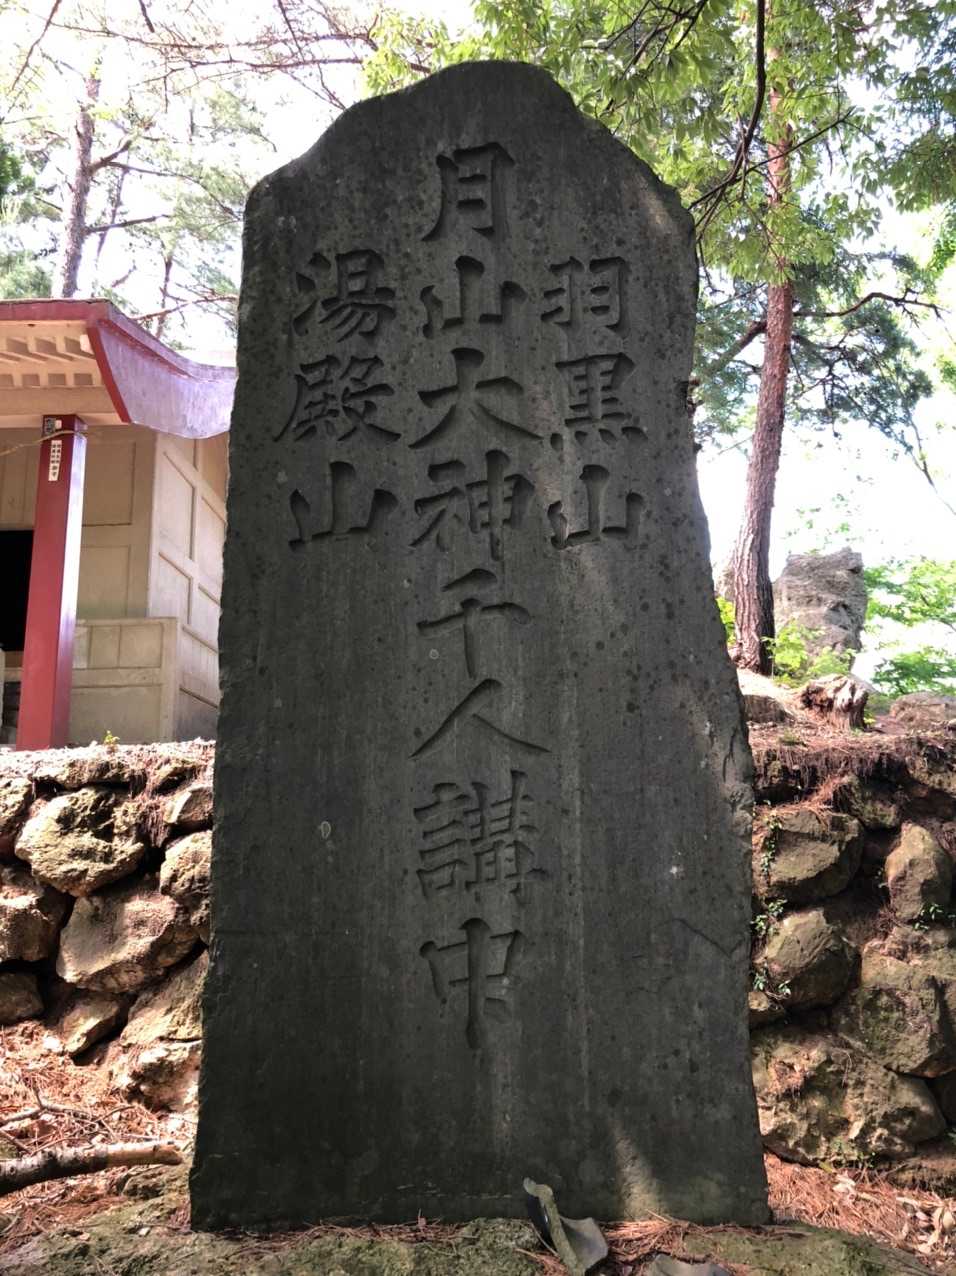 羽黒山
月山大神千人講中
湯殿山